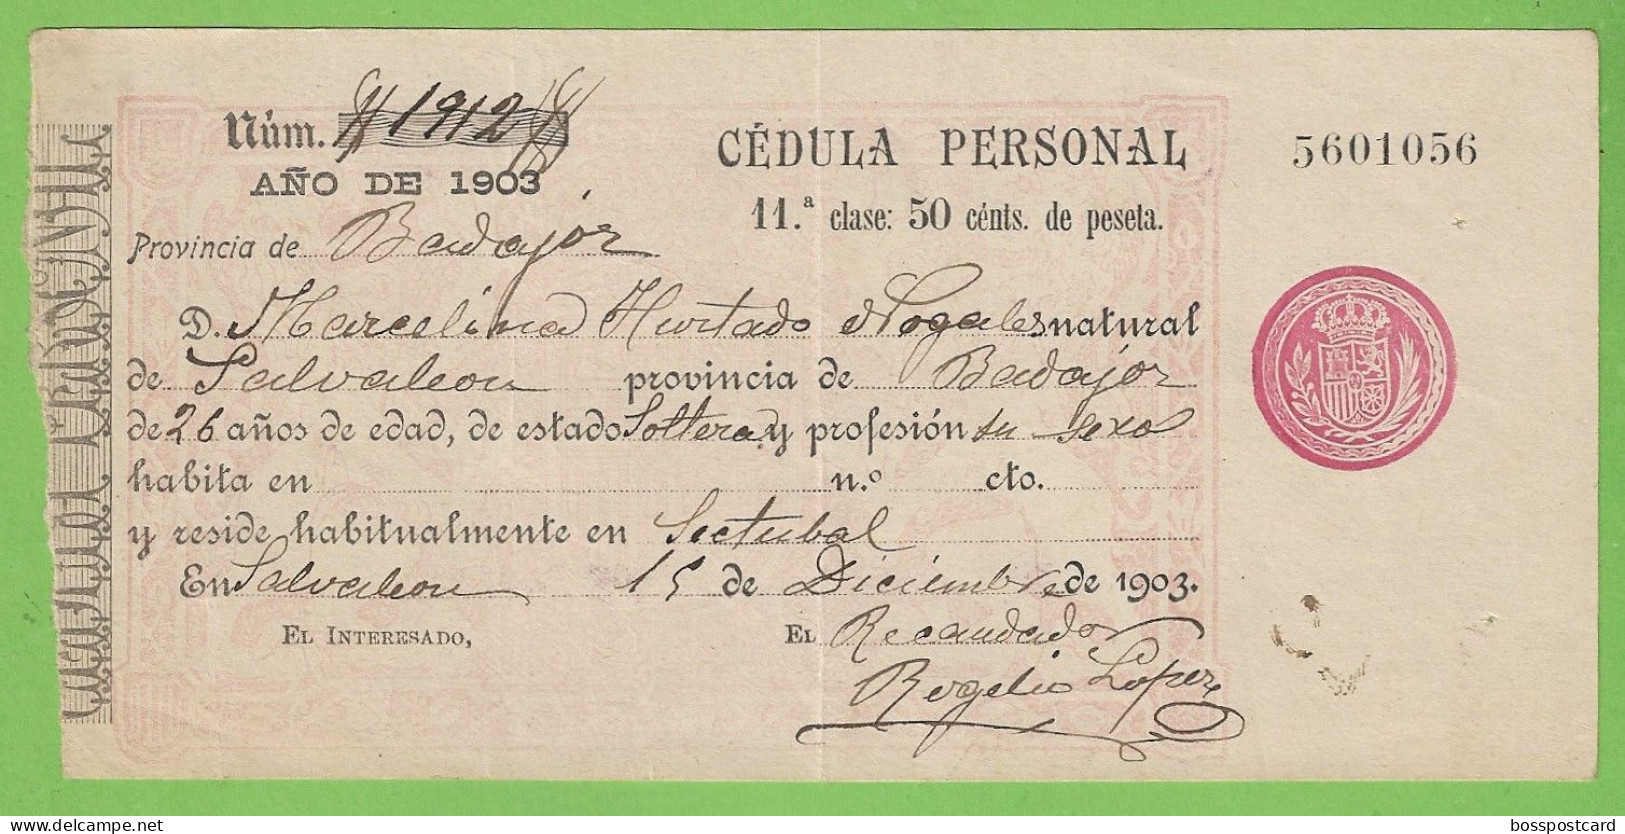 Núm. 1912
AÑO DE 1903
CÉDULA PERSONAL
5601056
11.ª clase: 50 cénts. de peseta.
Provincia de Badajoz
D. Marcelina Hurtado Nogales natural
de Salvaleon provincia de Badajoz
de 26 años de edad, de estado Soltera y profesión su sexo
habita en n.º cto.
y reside habitualmente en Sectubal
En Salvaleon 15 de Diciembre de 1903.
EL INTERESADO,
EL Recaudador
Rogelio Lopez
bosspostcard